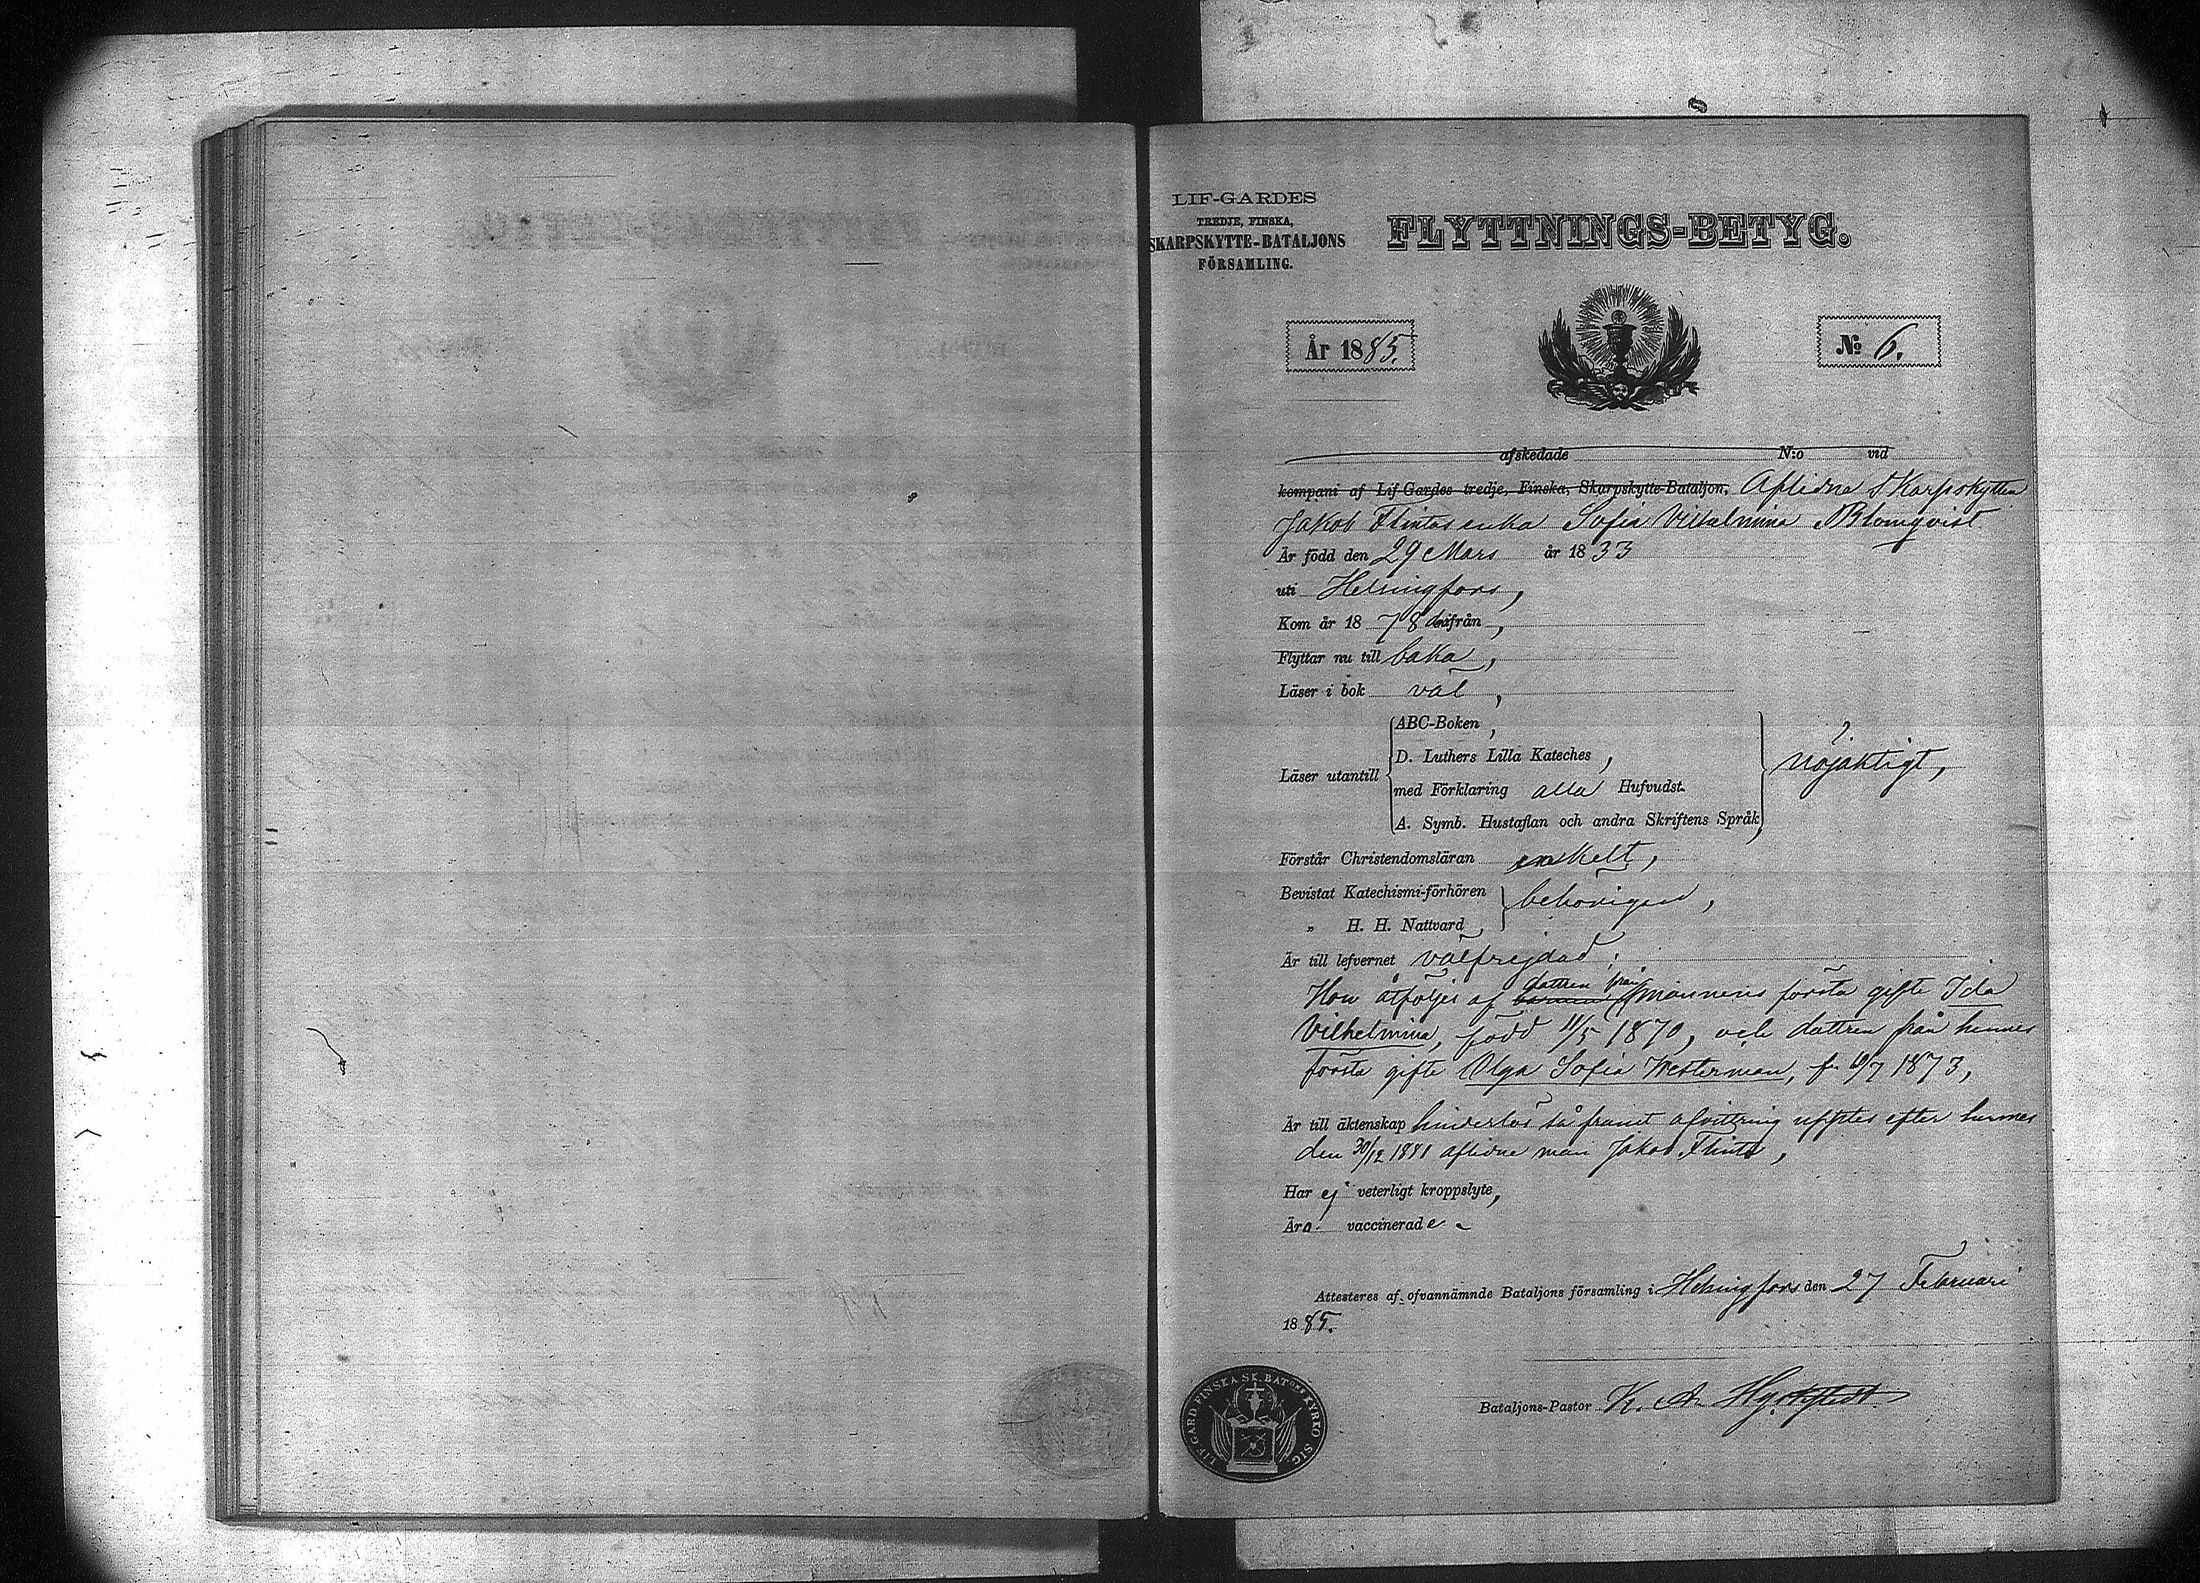 LIF-GARDES
TREDJE, FINSKA,
SKARPSKYTTE-BATALJONS
FÖRSAMLING.
FLYTTNINGS-BETYG.
År 1885.
№ 6.
afskedade N:o vid
kompani af Lif-Gardes tredje, Finska, Skarpskytte-Bataljon, Aflidne Skarpskytten
Jakob Flintas enka Sofia Vilhelmina Blomqvist
Är född den 29 Mars år 1833
uti Helsingfors,
Kom år 1878 härifrån,
Flyttar nu till baka,
Läser i bok väl,
Läser utantill
ABC-Boken,
D. Luthers Lilla Kateches,
med Förklaring alla Hufvudst.
A. Symb. Hustaflan och andra Skriftens Språk,
nöjaktigt,
Förstår Christendomsläran enkelt,
Bevistat Katechismi-förhören
„ H. H. Nattvard,
behörigen,
Är till lefvernet välfrejdad;
Hon åtföljes af dottren från mannens första gifte Ida
Vilhelmina, född 11/5 1870, och dottren från hennes
första gifte Olga Sofia Westerman, f. 10/7 1873,
Är till äktenskap hinderlös så framt afvittring upptes efter hennes
den 30/12 1881 aflidne man Jakob Flinta,
Har ej veterligt kroppslyte,
Ära vaccinerade.
Attesteres af ofvannämnde Bataljons församling i Helsingfors den 27 Februari
1885.
Bataljons-Pastor K. A.
LIF GARD FINSKA SK. BATONS KYRKO SIG